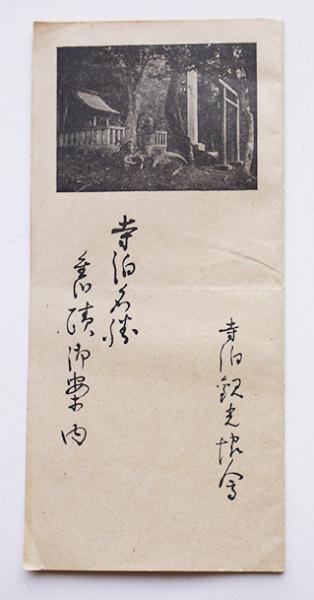 寺泊観光協會
寺泊名勝
舊蹟御案内